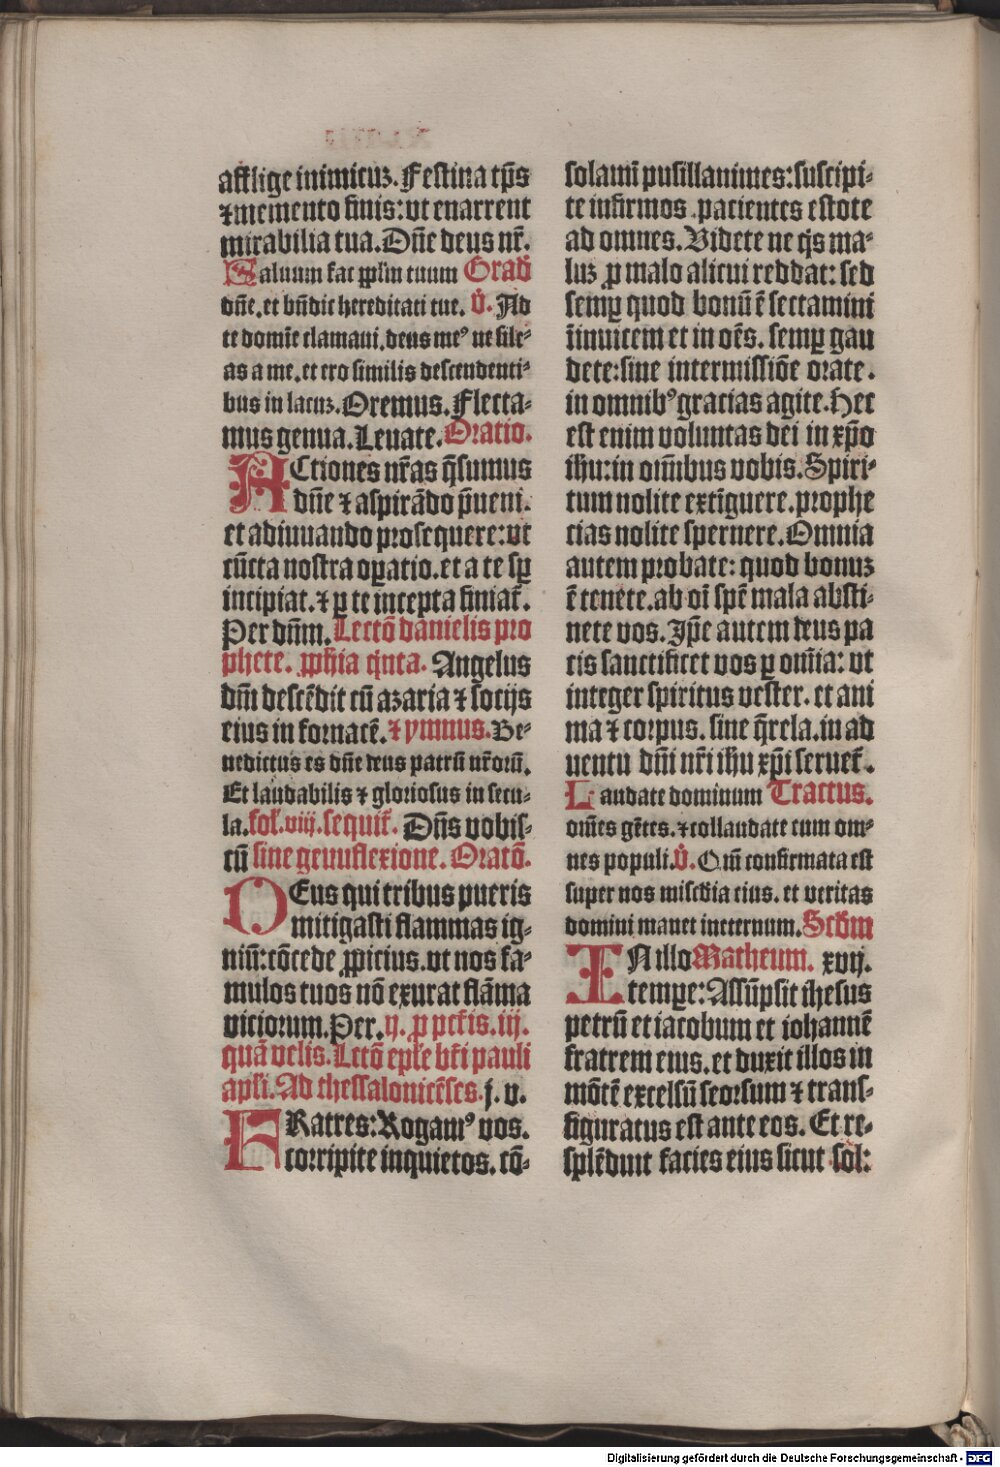 afflige inimicuꝫ. Festina tp̄s
⁊ memento finis: vt enarrent
mirabilia tua. Dn̄e deus nr̄.
Saluum fac ppl̄m tuum Grad̄
dn̄e. et bn̄dic hereditati tue. V̄. Ad
te domīe clamaui. deus meꝰ ne sile-
as a me. et ero similis descendenti-
bus in lacuꝫ. Oremus. Flecta-
mus genua. Leuate. Oratio.
ACtiones nr̄as q̄sumus
dn̄e ⁊ aspirādo p̄ueni.
et adiuuando prosequere: vt
cūcta nostra oꝑatio. et a te sꝑ
incipiat. ⁊ ꝑ te incepta finiat̄.
Per dn̄m. Lectō danielis pro
phete. ꝓph̄ia q̄nta. Angelus
dn̄i descēdit cū azaria ⁊ socijs
eius in fornacē. ⁊ ymnus. Be-
nedictus es dn̄e deus patrū nr̄orū.
Et laudabilis ⁊ gloriosus in secu-
la. fol̄. viij. sequit̄. Dn̄s vobis-
cū sine genuflexione. Oratō.
DEus qui tribus pueris
mitigasti flammas ig-
niū: cōcede ꝓpicius. vt nos fa-
mulos tuos nō exurat flāma
viciorum. Per. ij. ꝓ pct̄is. iij.
quā velis. Lctō epl̄e bt̄i pauli
apl̄i. Ad thessalonicēses. j. v.
FRatres: Rogamꝰ vos.
corripite inquietos. cō-
solamī pusillanimes: suscipi-
te infirmos. pacientes estote
ad omnes. Videte ne q̄s ma-
luꝫ ꝓ malo alicui reddat: sed
semꝑ quod bonū ē sectamini
īinuicem et in oēs. semꝑ gau
dete: sine intermissiōe orate.
in omnibꝰ gracias agite. Hec
est enim voluntas dei in xp̄o
ihu: in oīnibus vobis. Spiri-
tum nolite extīguere. prophe
cias nolite spernere. Omnia
autem probate: quod bonuꝫ
ē tenete. ab oī spē mala absti-
nete vos. Ip̄e autem deus pa
cis sanctificet vos ꝑ om̄ia: vt
integer spiritus vester. et ani
ma ⁊ corpus. sine q̄rela. in ad
uentu dn̄i nr̄i ihu xp̄i seruet̄.
Laudate dominum Tractus.
om̄es gētes. ⁊ collaudate eum om-
nes populi. V̄. Qm̄ confirmata est
super nos miſcd̄ia eius. et veritas
domini manet ineternum. Scd̄m
IN illo Matheum. xvij.
tempore: Assūpsit ihesus
petrū et iacobum et iohannē
fratrem eius. et duxit illos in
mōtē excelsū seorsum ⁊ trans-
figuratus est ante eos. Et re-
splēduit facies eius sicut sol:
Digitalisierung gefördert durch die Deutsche Forschungsgemeinschaft - DFG